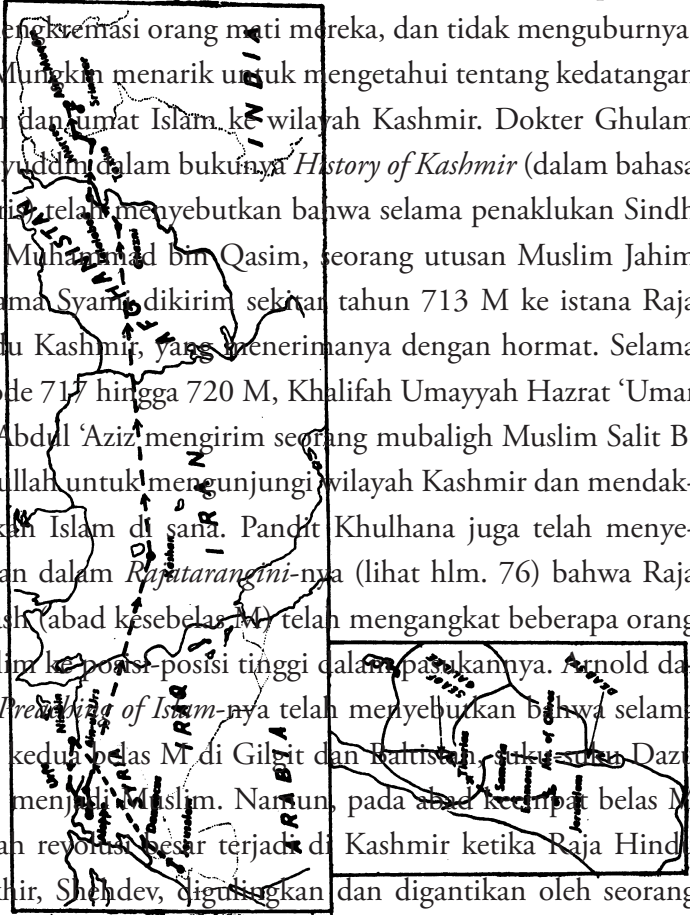 engkremasi orang mati mereka, dan tidak menguburnya
Mungkin menarik untuk mengetahui tentang kedatangan
dan umat Islam ke wilayah Kashmir. Dokter Ghulam
yuddin dalam bukunya History of Kashmir (dalam bahasa
telah menyebutkan bahwa selama penaklukan Sindh
Muhammad bin Qasim, seorang utusan Muslim Jahim
ama Syami dikirim sekitar tahun 713 M ke istana Raja
du Kashmir, yang menerimanya dengan hormat. Selama
ode 717 hingga 720 M, Khalifah Umayyah Hazrat ‘Umar
Abdul ‘Aziz mengirim seorang mubaligh Muslim Salit B
ullah untuk mengunjungi wilayah Kashmir dan mendak-
kan Islam di sana. Pandit Khulhana juga telah menye-
an dalam Rajatarangini-nya (lihat hlm. 76) bahwa Raja
ash (abad kesebelas M) telah mengangkat beberapa orang
lim ke posisi-posisi tinggi dalam pasukannya. Arnold da-
Preaching of Islam-nya telah menyebutkan bahwa selama
kedua belas M di Gilgit dan Baltistan, suku-suku Dazu
menjadi Muslim. Namun, pada abad keempat belas M
an revolusi besar terjadi di Kashmir ketika Raja Hindu
khir, Shendev, digulingkan dan digantikan oleh seorang
INDIA
Srinagar
Murree
Taxila
AFGHANISTAN
Jalalabad
Ghazni
IRAN
Kashan
IRAQ
Nisibis
SYRIA
Aleppo
Damascus
Jerusalem
ARABIA
SEA OF GALILEE
Tiberias
Samaria
Emmaus
Mt. of Olives
Jerusalem